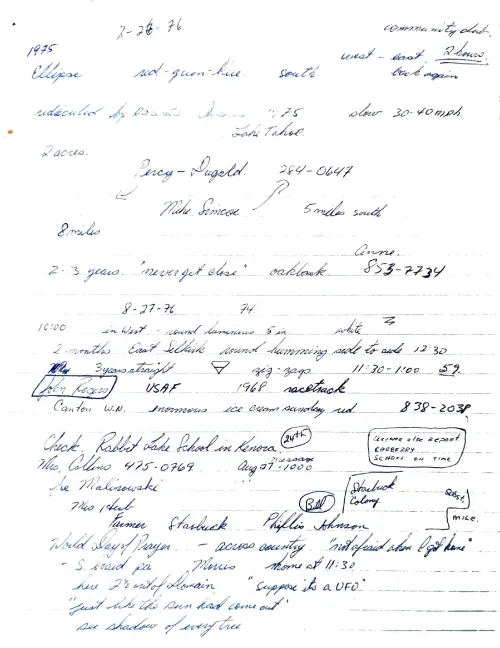 2-26-76. community club.
1975 west - east 2 hours.
Ellipse red-green-blue. south back again
ridiculed by 75 slow 30-40 mph.
Lake Tahoe
2 acres.
Percy - Dugald. 284-0647
Mike Simcoe 5 miles south
8 miles
Anne.
2-3 years. "never get close" oakbank 853-7734
8-27-76 74.
10:00 in West - round luminous 5 in. white
2 months East Selkirk round humming side to side 12:30
3 years straight zig-zags 11:30-1:00 59.
John Rogers USAF 1968 racetrack
Canton W.N. enormous ice cream sunday red 838-2038
Check. Rabbit Lake School in Kenora 24th
CARBERRY
SCHOOL ON TIME
Mrs. Collins 475-0769 Aug 1000
Joe Malinowski Starbuck Colony.
Mrs Herb Bill MILE.
Farmer Starbuck Phyllis Johnson
World Day of Prayer - across country "not afraid when I got home"
home at 11:30
here 2's "suppose its a UFO"
"just like the sun had come out"
see shadow of every tree